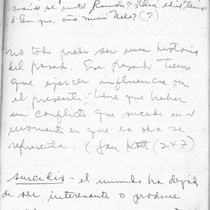 cuándo se
¿En que año murió ? (?)
no todo puede ser una historia
del pasado. Ese pasado tiene
que ejercer influencia en
el presente; tiene que haber
un conflicto que suceda en el
momento en que la obra se
representa. (Jan Kott (247)
suicidio - el mundo ha dejado
de ser interesante o produce